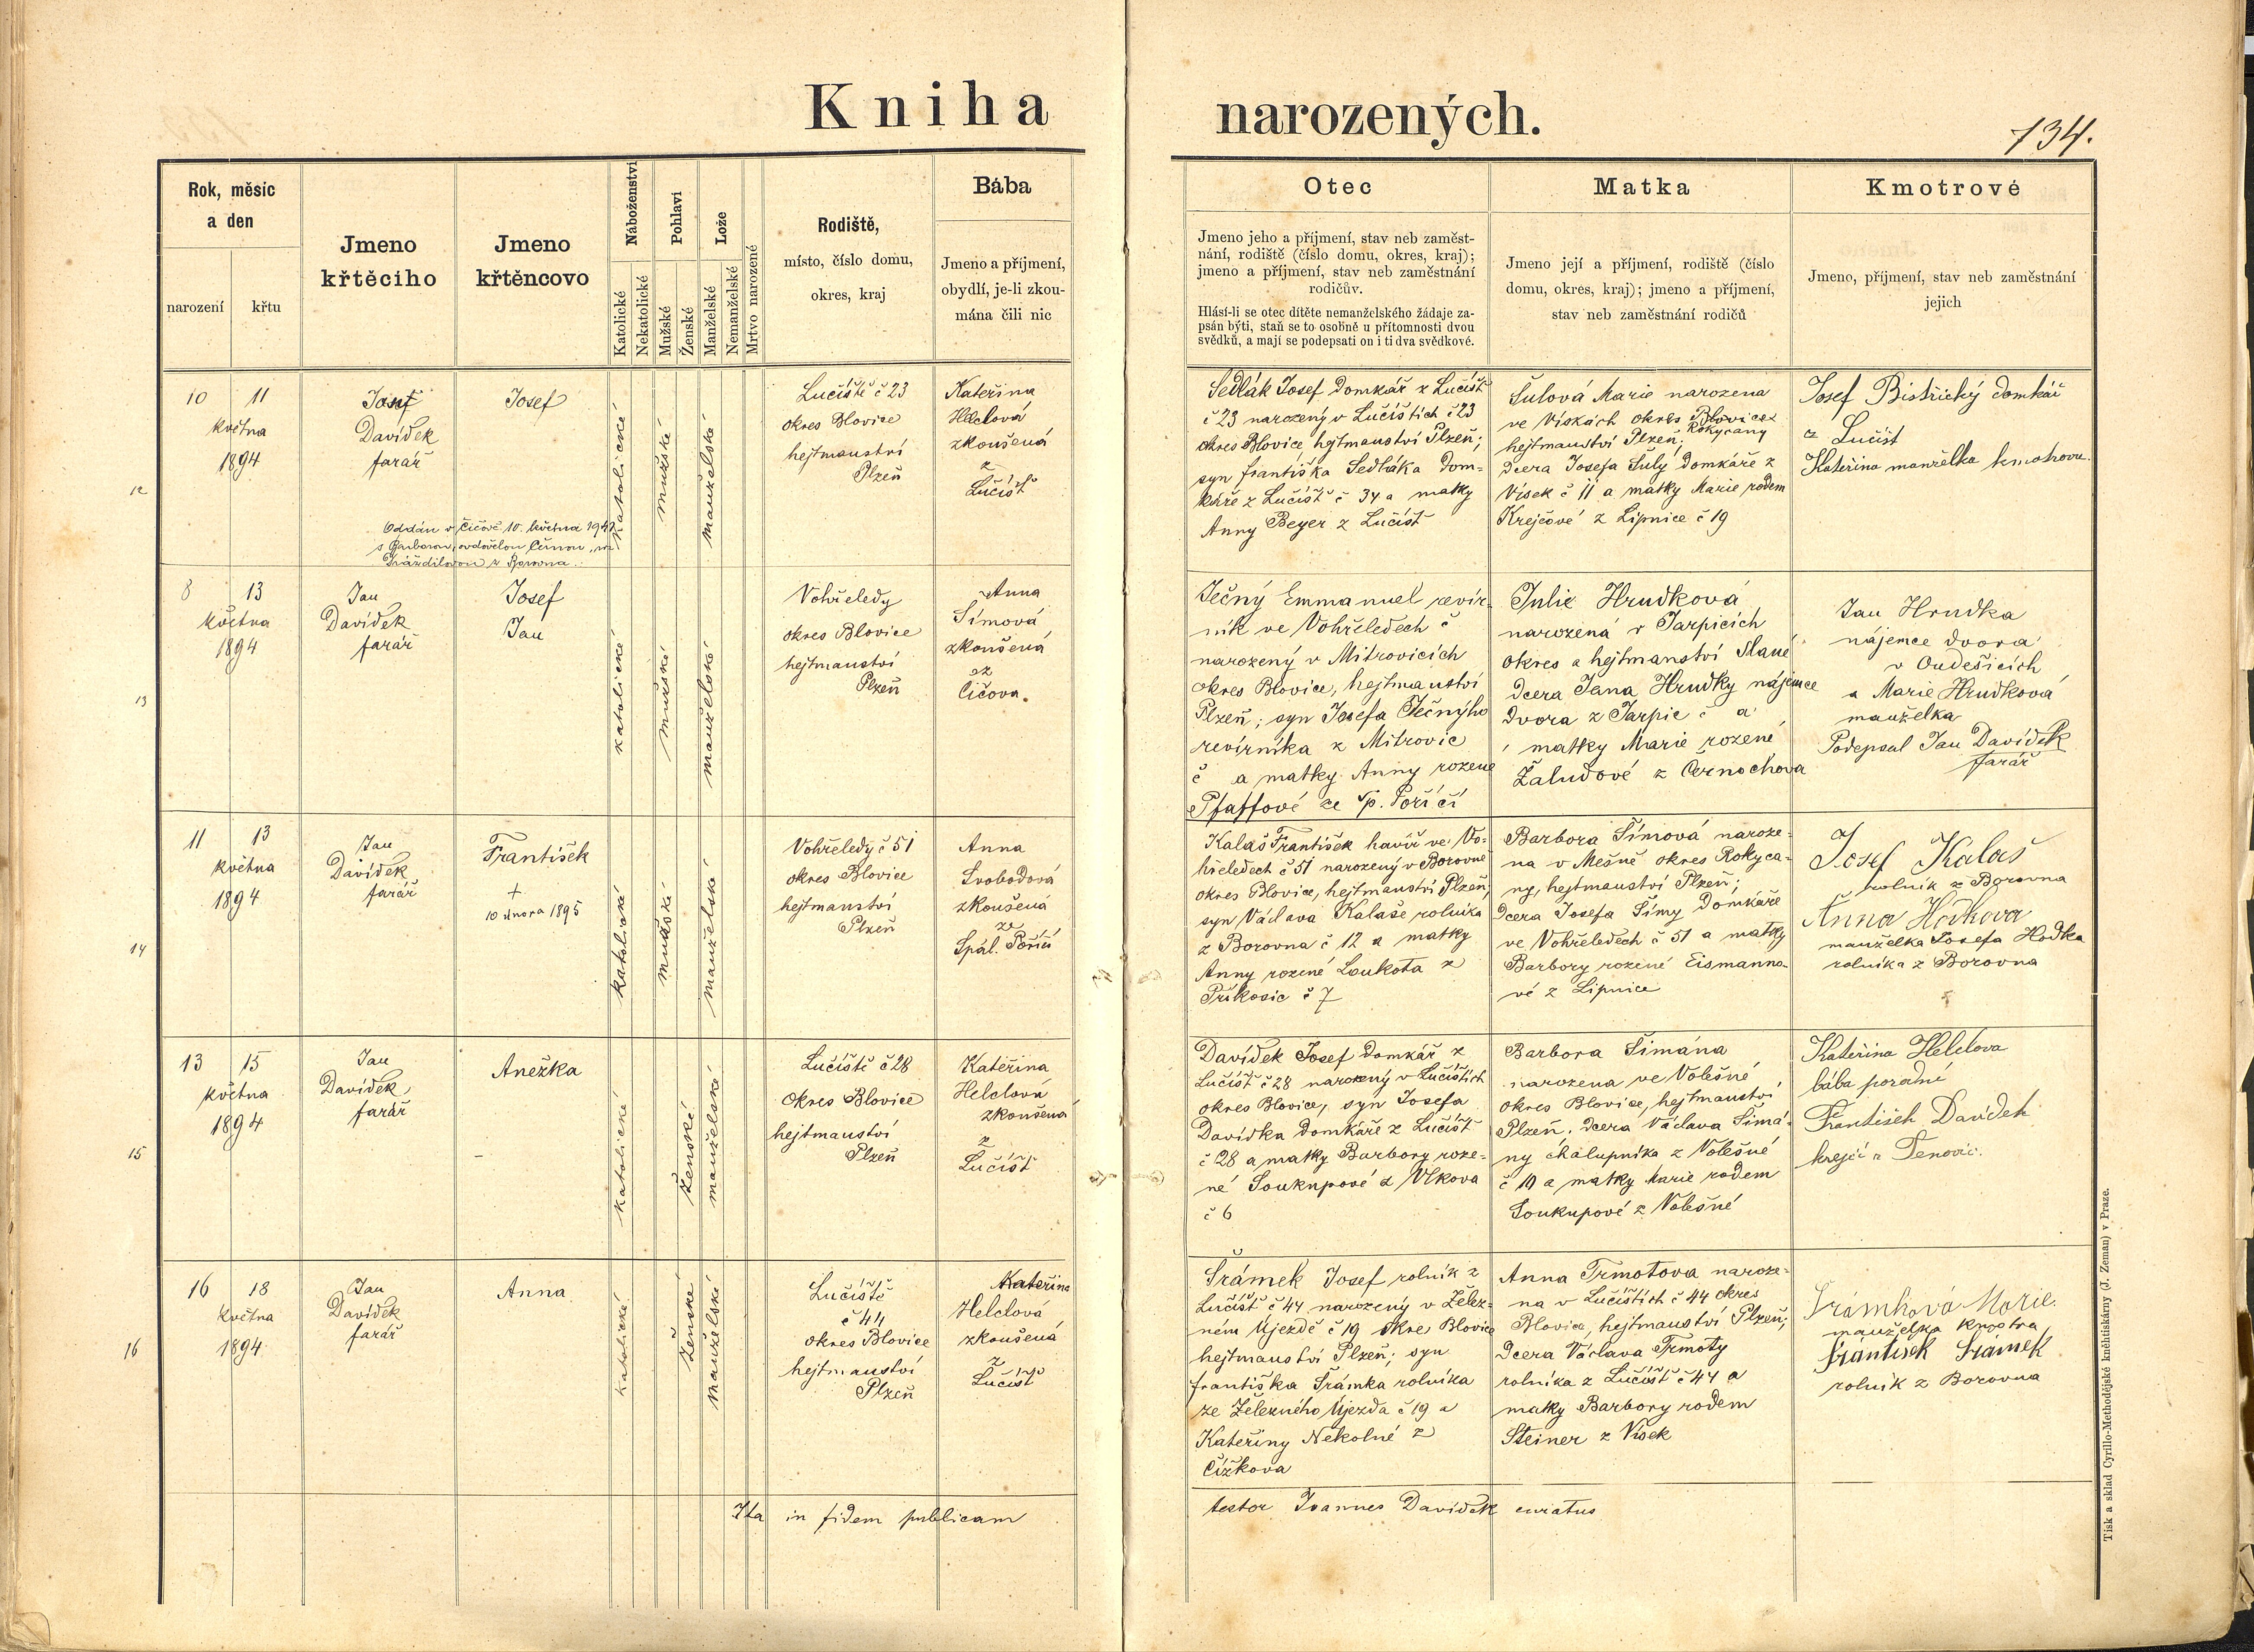 Kniha narozených.
134.
Rok, měsíc
a den
narození
křtu
Jmeno
křtěcího
Jmeno
křtěncovo
Náboženství
Katolické
Nekatolické
Pohlaví
Mužské
Ženské
Lože
Manželské
Nemanželské
Mrtvo narozené
Rodiště,
místo, číslo domu,
okres, kraj
Bába
Jmeno a příjmení,
obydlí, je-li zkou-
mána čili nic
Otec
Jmeno jeho a příjmení, stav neb zaměst-
nání, rodiště (číslo domu, okres, kraj);
jmeno a příjmení, stav neb zaměstnání
rodičův.
Hlásí-li se otec dítěte nemanželského žádaje za-
psán býti, staň se to osobně u přítomnosti dvou
svědků, a mají se podepsati on i ti dva svědkové.
Matka
Jmeno její a příjmení, rodiště (číslo
domu, okres, kraj); jmeno a příjmení,
stav neb zaměstnání rodičů
Kmotrové
Jmeno, příjmení, stav neb zaměstnání
jejich
12
10 11
května
1894
Davídek
farář
Josef
Oddán v Čičově 10. května 194
s Barborou, ovdovělou
katolické
mužské
manželské
Lučiště č 23
okres Blovice
hejtmanství
Plzeň
Kateřina
Helclová
zkoušená
z
Lučišť
Sedlák Josef Domkář z Lučišť
č 23 narozený v Lučištích č 23
okres Blovice, hejtmanství Plzeň;
syn františka Sedláka Dom-
káře z Lučišť č 34 a matky
Anny Beyer z Lučišť
Šulová Marie narozena
ve Vískách okres Blovice
Rokycany
hejtmanství Plzeň;
dcera Josefa Šuly Domkáře z
Vísek č 11 a matky Marie rodem
Krejčové z Lipnice č 19
Josef Bistřický domkář
z Lučišť
Kateřina manželka kmotrova
13
8 13
května
1894
Jan
Davídek
farář
Josef
Jan
katolické
mužské
manželské
Vohřeledy
okres Blovice
hejtmanství
Plzeň
Anna
Šimová
zkoušená
ez
Čičova.
Ječný Emmanuel revír-
ník ve Vohřeledech č
narozený v Mitrovicích
okres Blovice, hejtmanství
Plzeň; syn Josefa Ječnýho
revírníka z Mitrovic
č a matky Anny rozené
Pfaffové ze Sp. Poříčí
Julie Hrudková
narozená v Jarpicích
okres a hejtmanství Slané
dcera Jana Hrudky nájemce
dvora z Jarpic č a
matky Marie rozené
Žaludové z Černochova
Jan Hrudka
nájemce dvora
v Oudešicích
a Marie Hrudková
manželka
Podepsal Jan Davídek
farář
14
11 13
května
1894
Jan
Davídek
farář
František
+
10 února 1895
katolické
mužské
manželské
Vohřeledy č 51
okres Blovice
hejtmanství
Plzeň
Anna
Svobodová
zkoušená
ze
Spál. Poříčí
Kalaš František havíř ve Vo-
hřeledech č 51 narozený v Borovně
okres Blovice, hejtmanství Plzeň;
syn Václava Kalaše rolníka
z Borovna č 12 a matky
Anny rozené Loukota z
Příkosic č 7
Barbora Šimová naroze-
na v Mešně okres Rokyca-
ny, hejtmanství Plzeň;
dcera Josefa Šimy Domkáře
ve Vohřeledech č 51 a matky
Barbory rozené Eismanno-
vé z Lipnice
Josef Kalaš
rolník z Borovna
Anna Hodková
manželka Josefa Hodka
rolníka z Borovna
15
13 15
května
1894
Jan
Davídek
farář
Anežka
katolické
ženské
manželské
Lučiště č 28
okres Blovice
hejtmanství
Plzeň
Kateřina
Helclová
zkoušená
z
Lučišť
Davídek Josef domkář z
Lučišť č 28 narozený v Lučištích
okres Blovice, syn Josefa
Davídka Domkáře z Lučišť
č 28 a matky Barbory roze-
né Soukupové z Vlkova
č 6
Barbora Šimána
narozena ve Volešné
okres Blovice, hejtmanství
Plzeň, dcera Václava Šimá-
ny chalupníka z Volešné
č 10 a matky Marie rodem
Soukupové z Volešné
Kateřina Helclova
bába porodní
František Davídek
krejčí z Tenovic.
16
16 18
května
1894
Jan
Davídek
farář
Anna
katolické
ženské
manželské
Lučiště
č 44
okres Blovice
hejtmanství
Plzeň
Kateřina
Helclová
zkoušená
z
Lučišť
Šrámek Josef rolník z
Lučišť č 44 narozený v Želez-
ném Újezdě č 19 okre Blovice
hejtmanství Plzeň; syn
františka Šrámka rolníka
ze Železného Újezda č 19 a
Kateřiny Nekolné z
Čížkova
Anna Trmotova naroze-
na v Lučištích č 44 okres
Blovice, hejtmanství Plzeň;
dcera Václava Trmoty
rolníka z Lučišť č 44 a
matky Barbory rodem
Steiner z Vísek
Šrámková Marie.
manželka kmotra
František Šrámek
rolník z Borovna
Ita in fidem publicam testor Joannes Davídek curatus
Tisk a sklad Cyrillo-Methodějské kněhtiskárny (J. Zeman) v Praze.